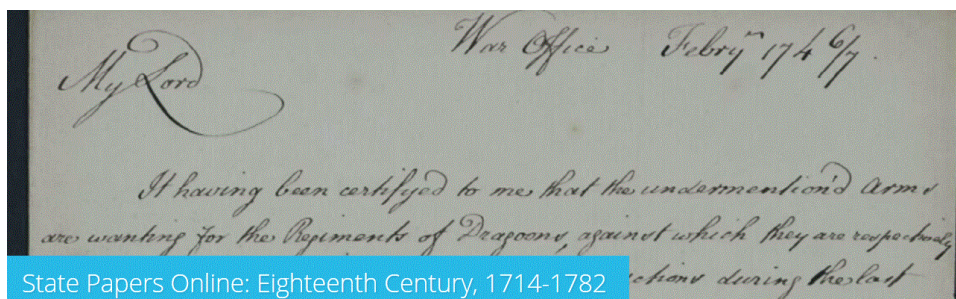 War Office Febry 174 6/7.
My Lord
It having been certifyed to me that the undermention'd Arms
are wanting for the Regiments of Dragoons, against which they are respectively
ctions during the last
State Papers Online: Eighteenth Century, 1714-1782